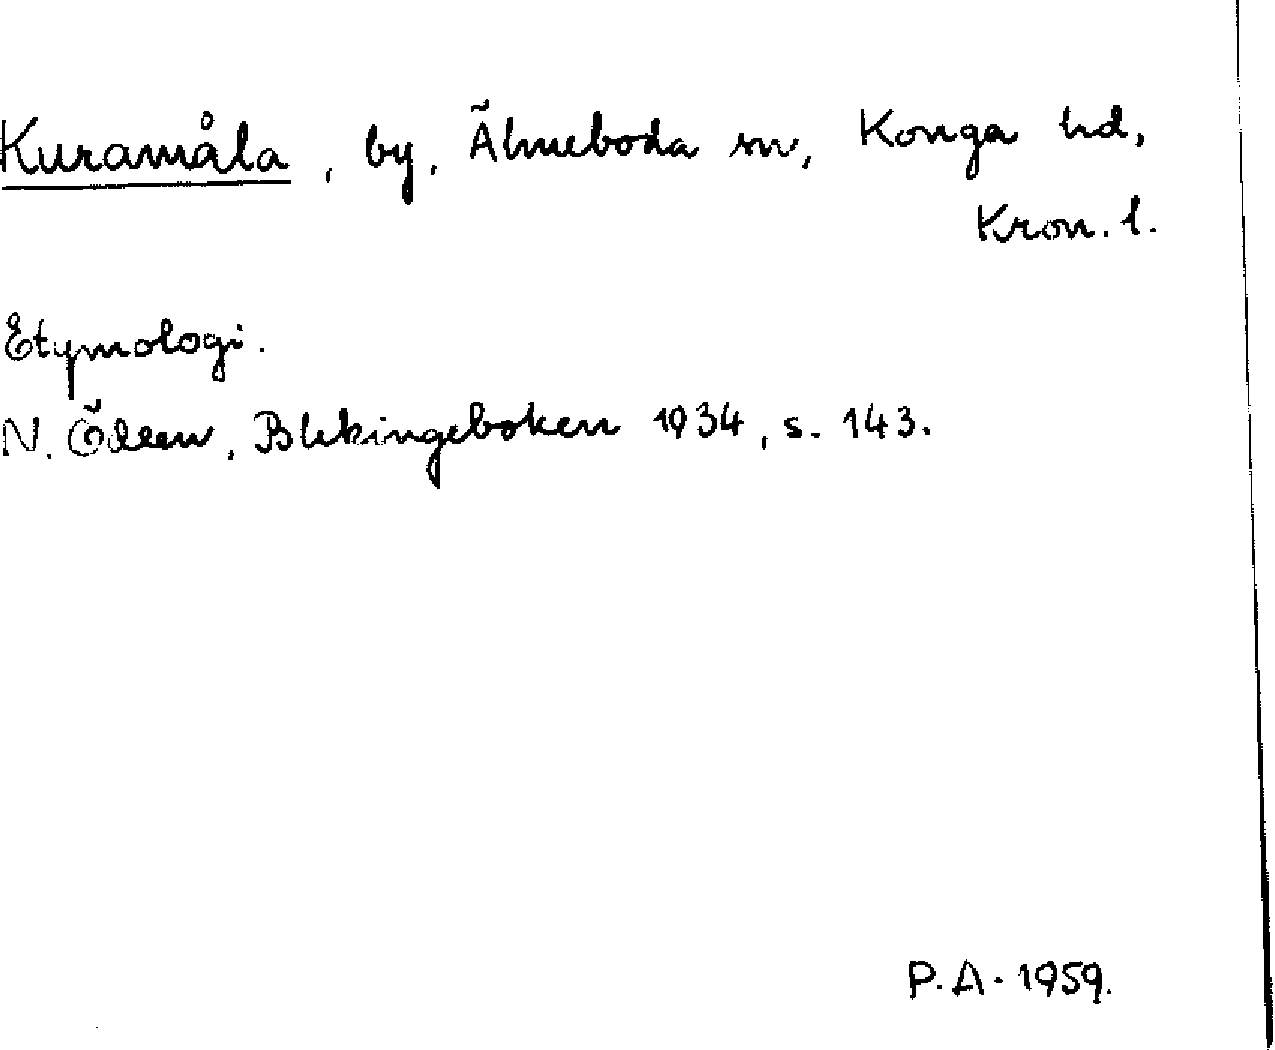 Kuramåla, by, Älmeboda sn, Konga hd,
Kron. l.
Etymologi.
N. Ödeen, Blekingeboken 1934, s. 143.
P. A. 1959.